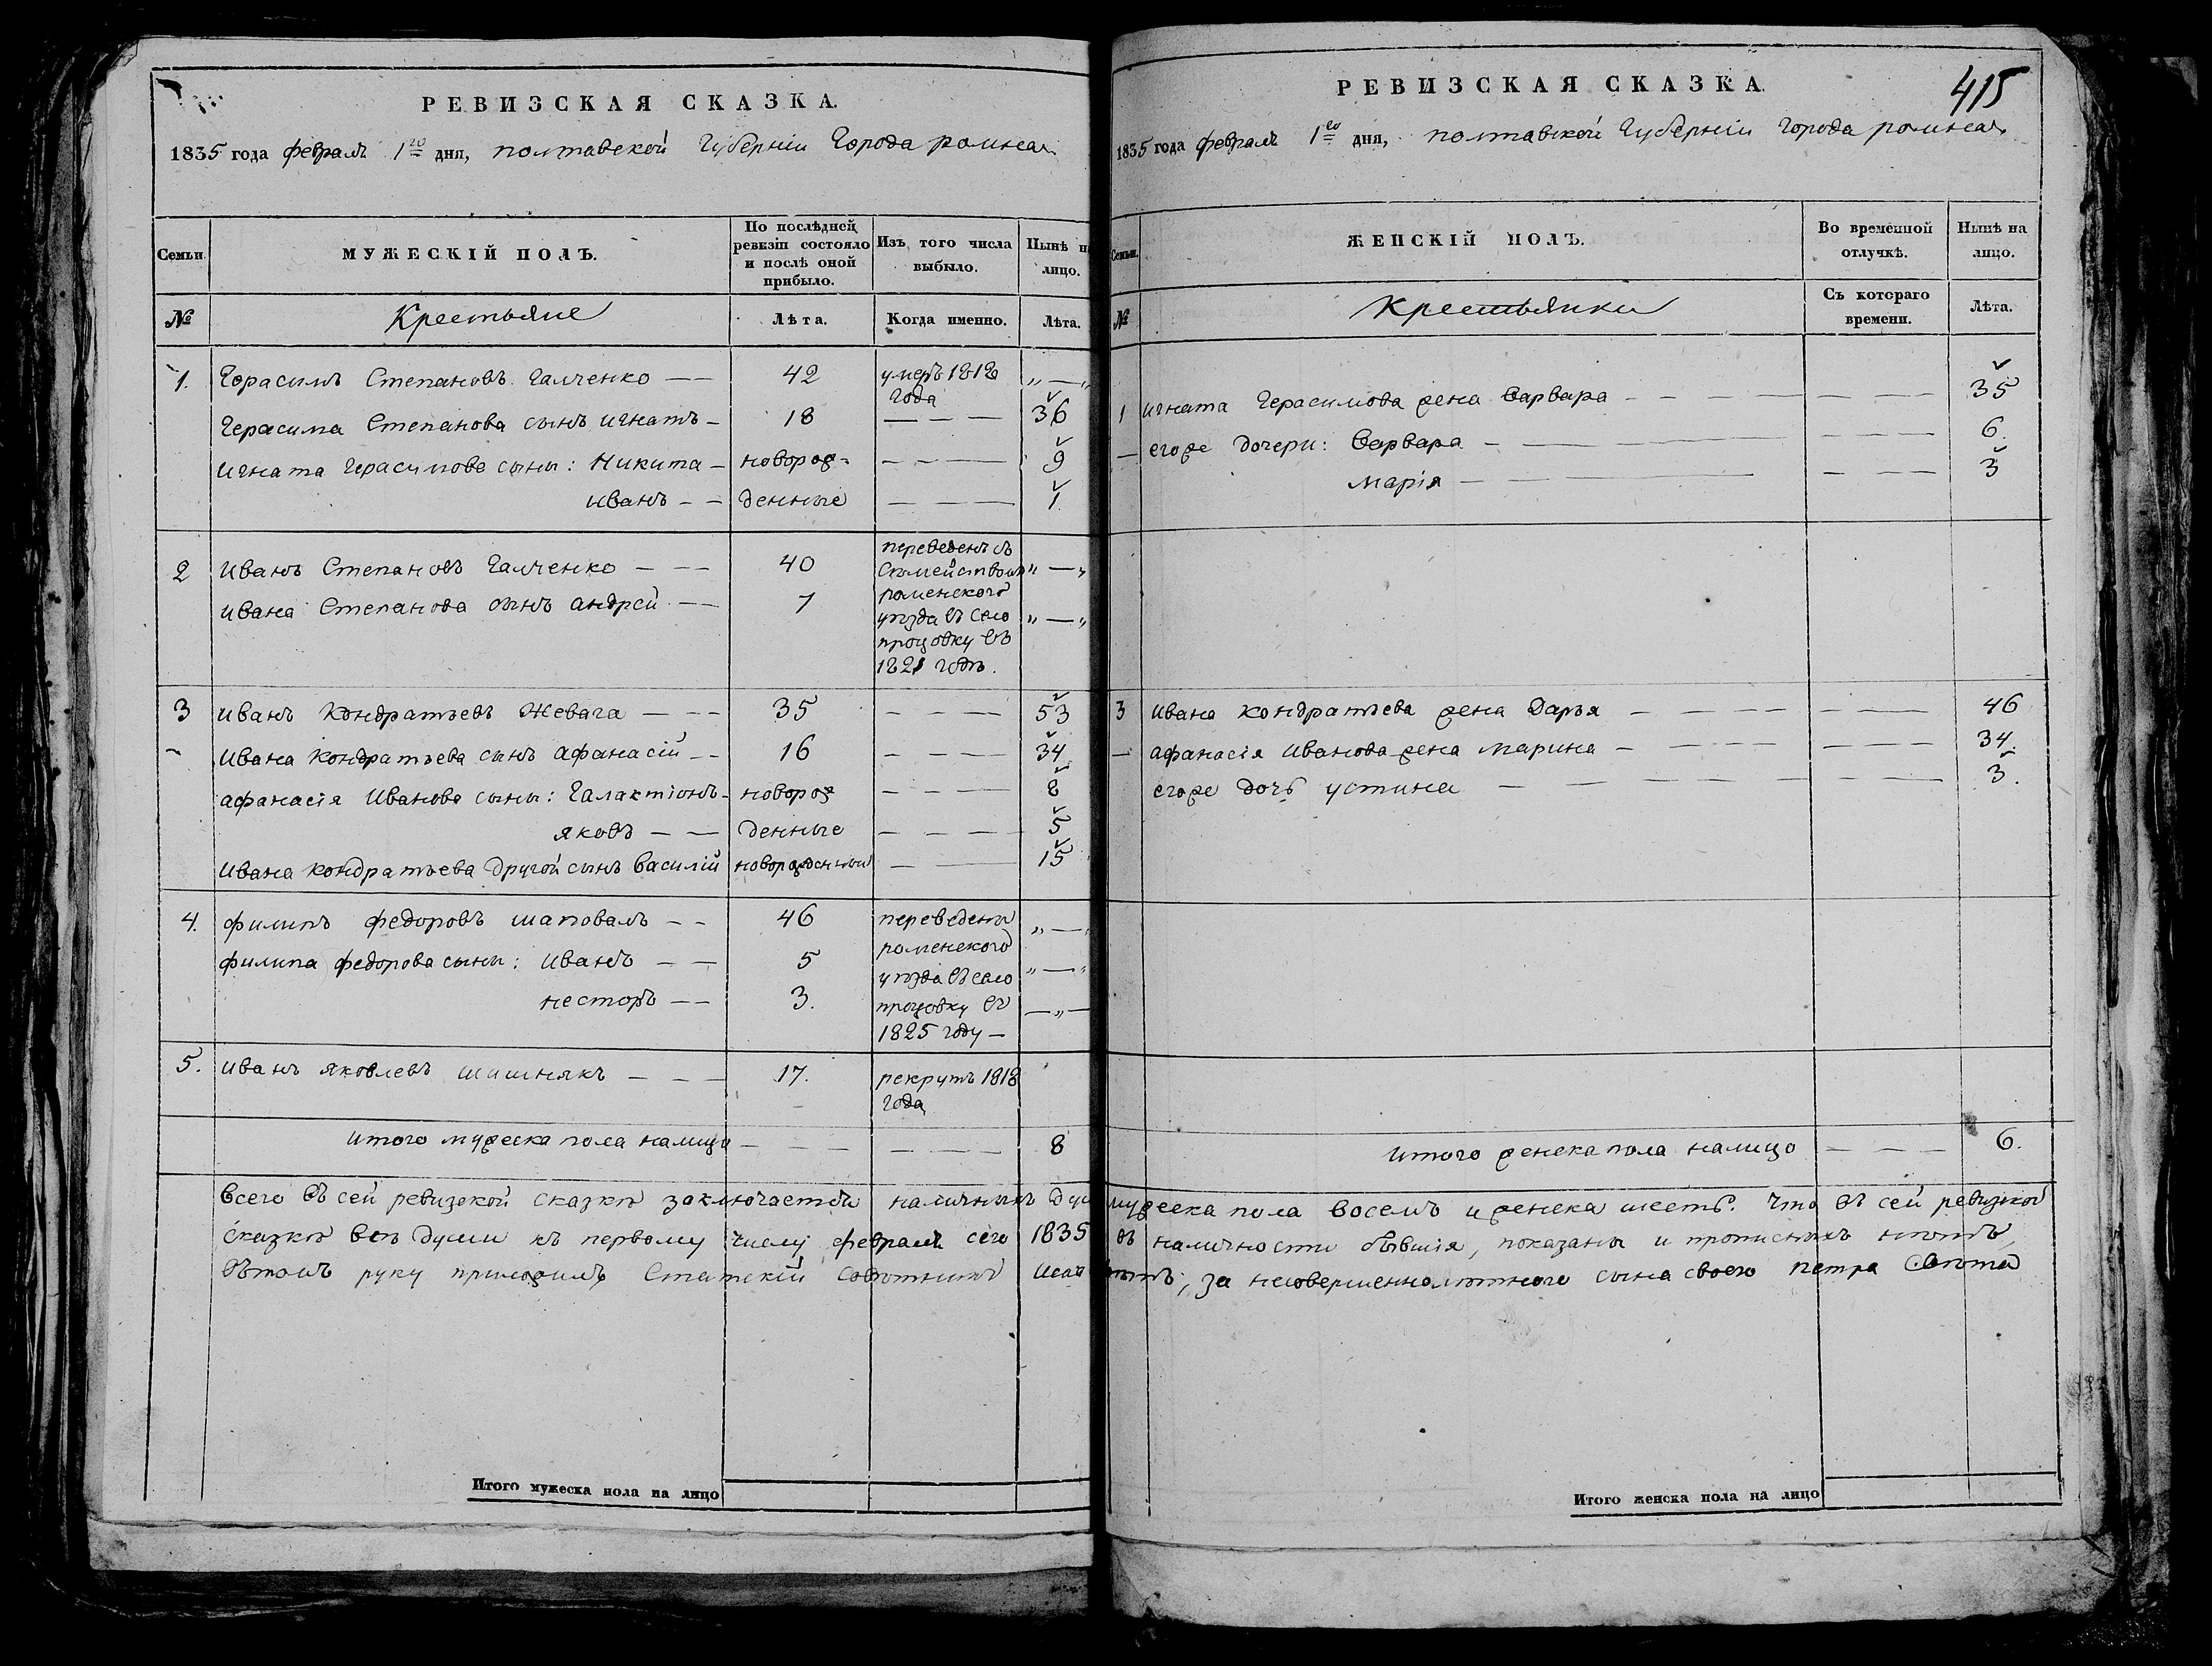 РЕВИЗСКАЯ СКАЗКА.
1835 года февраля 1го дня, полтавской Губерніи Города ромна
Семьи.
МУЖЕСКІЙ ПОЛЪ.
По послѣдней ревизіи состояло и послѣ оной прибыло.
Изъ того числа выбыло.
Нынѣ на лицо.
№
Крестьяне
Лѣта.
Когда именно.
Лѣта.
1. Герасимъ Степановъ Галченко — — 42 умеръ 1818 года „ — „
Герасима Степанова сынъ игнатъ — 18 — — 36
игната Герасимова сыны: Никита — новорож- — — — 9
иванъ — — денные — — — 1
2 иванъ Степановъ Галченко — — — 40 переведенъ съ „ — „
Семействомъ
ивана Степанова сынъ андрей — — 7 роменского
уѣзда въ село „ — „
процовку въ
1821 годѣ.
3 иванъ кондратьевъ Жевага — — — 35 — — — 53
ивана кондратьева сынъ афанасій — — 16 — — — 34
афанасія иванова сыны: Галактіонъ — новорож — — — 8
яковъ — — денные — — — 5
ивана кондратьева другой сынъ василій новорожденный — — 15
4. филипъ федоровъ шаповалъ — — 46 переведены „ — „
роменского
филипа федорова сыны: иванъ — — 5 уѣзда въ село „ — „
несторъ — — 3. процовку въ — „ —
1825 году —
5. иванъ яковлевъ шишнякъ — — — 17. рекрутъ 1818
года
итого мужеска пола налицо — — — — — — 8
всего въ сей ревизской сказкѣ заключается наличныхъ душ
сказкѣ всѣ души къ первому числу февраля сего 1835
въ томъ руку приложилъ Статскій Совѣтникъ
Итого мужеска пола на лицо
РЕВИЗСКАЯ СКАЗКА.
415
1835 года февраля 1го дня, полтавской Губерніи Города ромна
Семьи.
ЖЕНСКІЙ ПОЛЪ.
Во временной отлучкѣ.
Нынѣ на лицо.
№
Крестьянки
Съ котораго времени.
Лѣта.
1 игната Герасимова жена варвара — — — — — 35
— егоже дочери: варвара — — — — — 6.
марія — — — — — 3
3 ивана кондратьева жена Дарья — — — — — — — 46
— афанасія иванова жена марина — — — — — — — 34.
егоже дочь устина — — — — — — — 3.
итого женска пола налицо — — — 6.
мужеска пола восемь и женска шесть. Что въ сей ревизской
въ наличности бывшія, показаны и прописныхъ нѣтъ,
за несовершеннолѣтнего сына своего петра
Итого женска пола на лицо